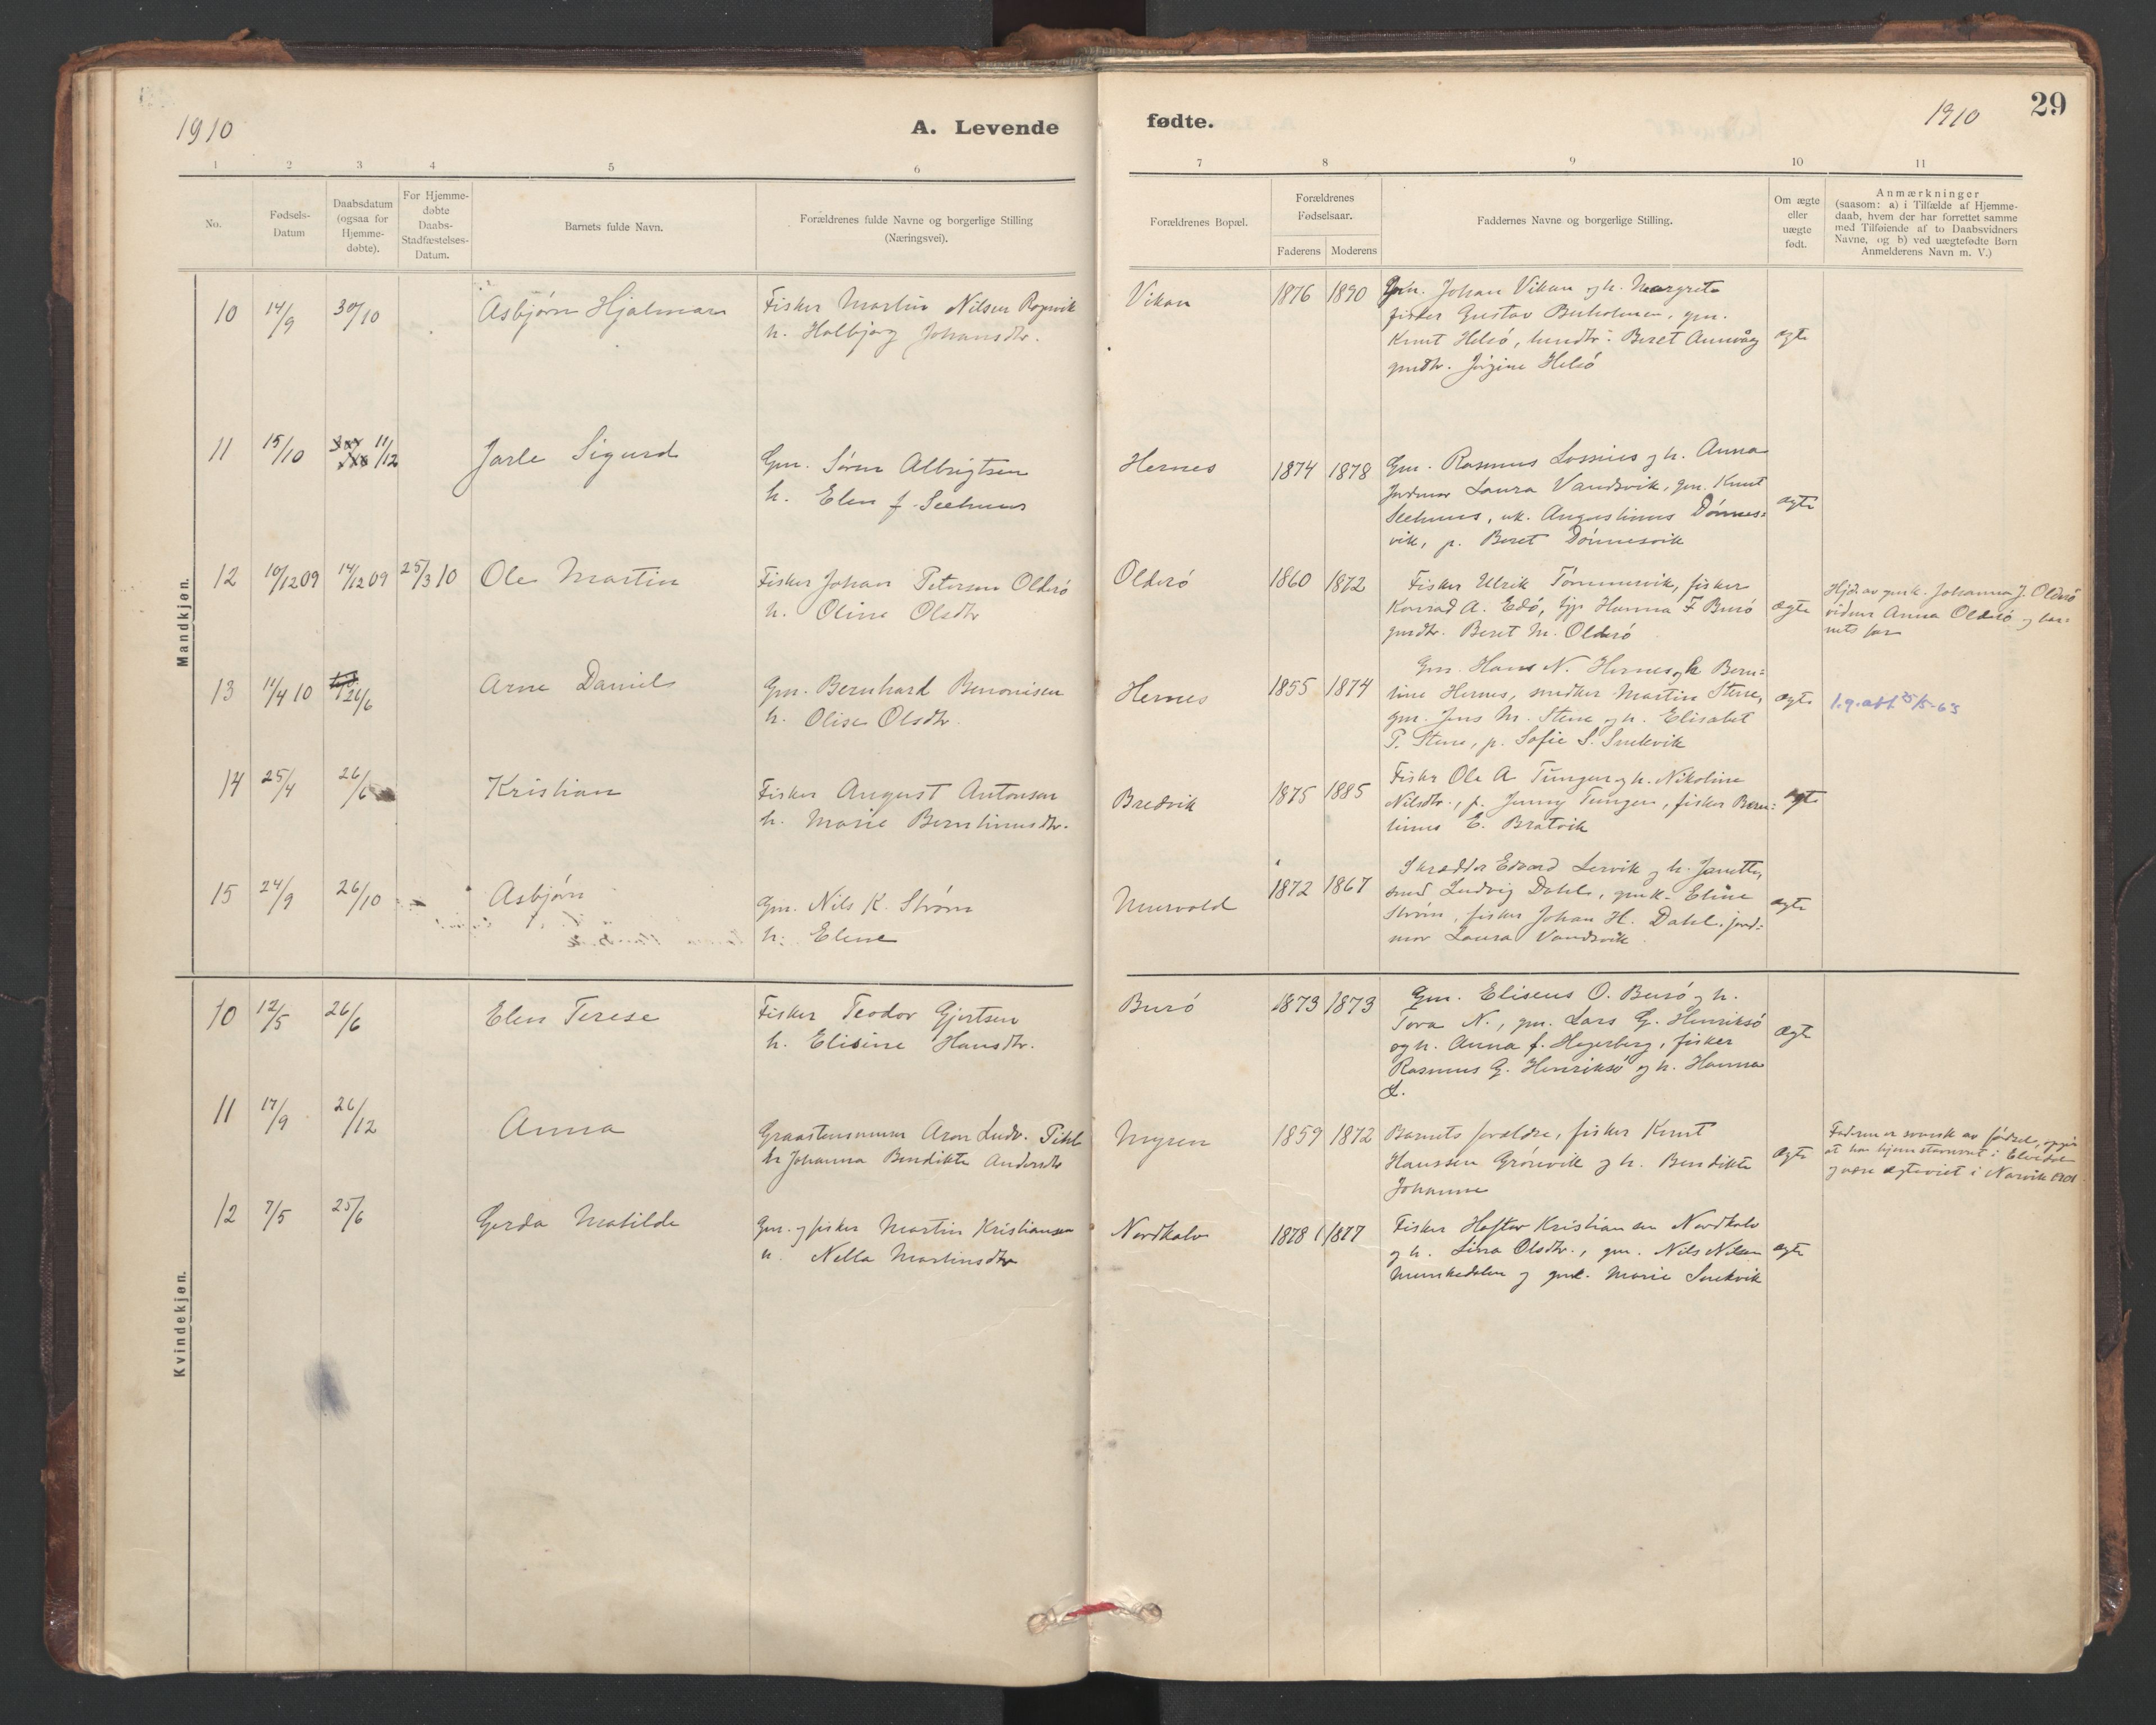 1910
A. Levende
fødte.
1910
29
1 2 3 4 5 6 7 8 9 10 11
No.
Fødsels-
Datum
Daabsdatum
(ogsaa for
Hjemme-
døbte).
For Hjemme-
døbte
Daabs-
Stadfæstelses-
Datum.
Barnets fulde Navn.
Forældrenes fulde Navne og borgerlige Stilling
(Næringsvei).
Forældrenes Bopæl.
Forældrenes
Fødselsaar.
Faderens Moderens
Faddernes Navne og borgerlige Stilling.
Om ægte
eller
uægte
født.
Anmærkninger
(saasom: a) i Tilfælde af Hjemme-
daab, hvem der har forrettet samme
med Tilføiende af to Daabsvidners
Navne, og b) ved uægtefødte Børn
Anmelderens Navn m. V.)
Mandkjøn.
10 14/9 30/10
Asbjørn Hjalmar
Fisker Martin Nilsen
h. Halbjørg Johansdtr.
Vikan
1876 1890
Gm. Johan Vikan og h. Margrete
fisker Gustav Burholmen, gm.
Knut Helsö, Beret
Jörgine Helsö
ægte
11 15/10 11/12
Jarle Sigurd
Gm. Sören Albrigtsen
h. Elen f. Seehuus
Hernes
1874 1878
Gm. Rasmus Lossius og h. Anna
Jordmor Laura Vandsvik, gm. Knut
Seehuus, uk. Augustinus Dönnes-
vik, p. Beret Dönnesvik
ægte
12 10/12 09 14/12 09 25/3 10
Ole Martin
Fisker Johan Petersen Olderö
h. Oline Olsdtr
Olderö
1860 1872
Fisker Ulrik Tömmervik, fisker
Konrad A. Edö, tjp Hanna F Burö
gmdtr. Beret M. Olderö
ægte
Hjd. av gmk. Johanna J. Olderö
vidner Anna Olderö og bar-
nets far
13 11/4 10 26/6
Arne Daniel
Gm. Bernhard Benonisen
h. Olise Olsdtr.
Hernes
1855 1874
Gm. Hans N. Hernes og h Bern-
tine Hernes, snedker Martin Stene,
gm. Jens M. Stene og h. Elisabet
P. Stene, p. Sofie S. Snekvik
ægte
l.g.att 25/5-63
14 25/4 26/6
Kristian
Fisker August Antonsen
h. Marie Berntinusdtr.
Bredvik
1875 1885
Fisker Ole A Tungen og h. Nikoline
Nilsdtr., p. Jenny Tungen, fisker Bern-
tinus E. Bratvik
ægte
15 24/9 26/10
Asbjörn
Gm. Nils K. Ström
h. Eline
Murvold
1872 1867
Skrædder Edvard Lervik og h. Janette,
smed Ludvig Dahl, gmk. Eline
Ström, fisker Johan H. Dahl, jord-
mor Laura Vandsvik
ægte
Kvindekjøn.
10 12/5 26/6
Elen Terese
Fisker Teodor Gjertsen
h. Elisine Hansdtr.
Burö
1873 1873
Gm. Eliseus O. Burö og h.
Tora N., gm. Lars G. Henriksö
og h. Anna f. Hegerberg, fisker
Rasmus G. Henriksö og h. Hanna
L.
ægte
11 17/9 26/12
Anna
Graastensmurer Aron Ludv. Pihl
h Johanna Bendikte Andersdtr
Myren
1859 1872
Barnets forældre, fisker Knut
Hanssen Grönvik og h. Bendikte
Johanne
ægte
Faderen er svensk av födsel, opgir
at ha hjemstavnsret i
og være ægteviet i Narvik 1901
12 7/5 25/6
Gerda Matilde
Gm. og fisker Martin Kristiansen
h. Nella Martinsdtr
Nordkalv
1878 1877
Fisker Haftor Kristiansen Nordkalv
og h. Lina Olsdtr., gm. Nils Nilsen
Munkedalen og gmk. Marie Snekvik
ægte